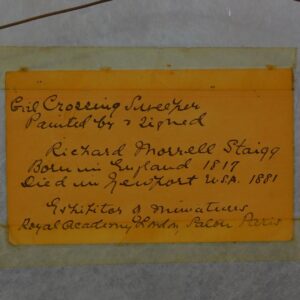 Girl Crossing Sweeper
Painted by & Signed
Richard Morrell Staigg
Born in England 1817
Died in Newport U.S.A. 1881
Exhibitor of miniatures
Royal Academy London Salon Paris